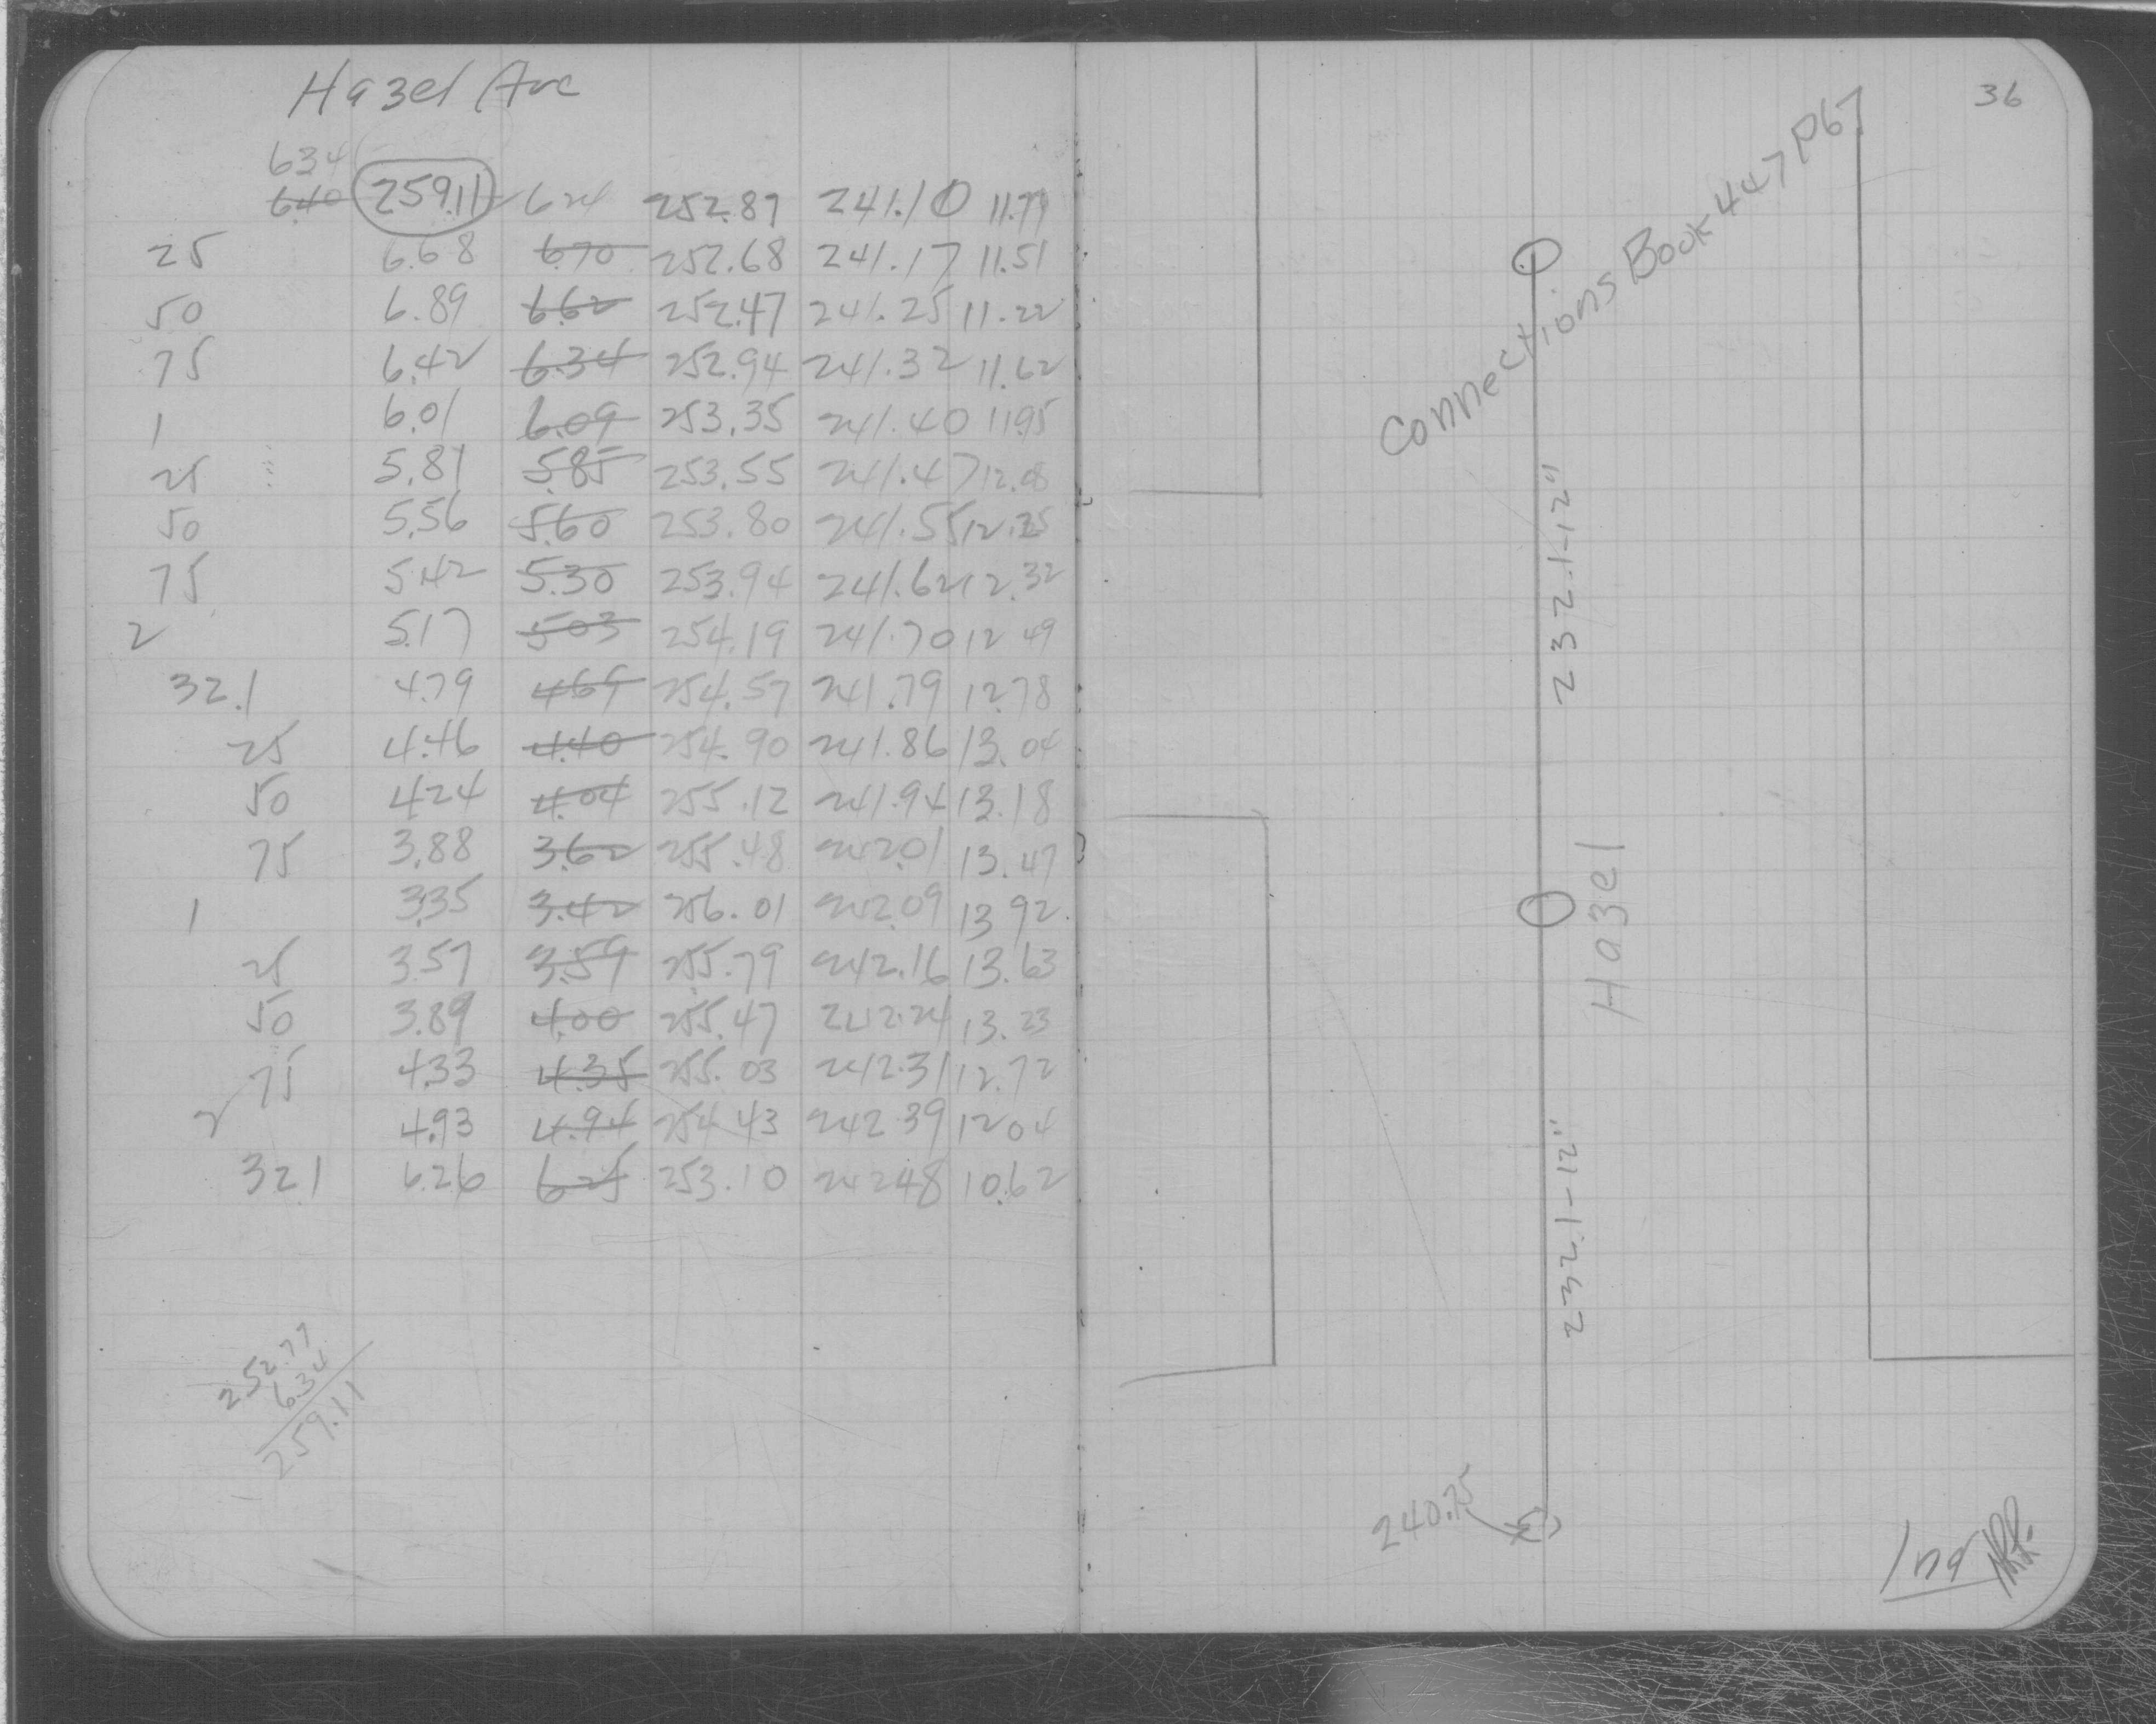 Hazel Ave
634
6.40 259.11 624 252.87 241.10 11.77
25 6.68 6.70 252.68 241.17 11.51
50 6.89 6.62 252.47 241.25 11.22
75 6.42 6.34 252.94 241.32 11.62
1 6.01 6.09 253.35 241.40 1195
25 5.81 5.85 253.55 241.47 12.08
50 5.56 5.60 253.80 241.55 12.25
75 5.42 5.30 253.94 241.62 12.32
2 5.17 503 254.19 241.70 12 49
32.1 4.79 4.69 254.57 241.79 12.78
25 4.46 4.40 254.90 241.86 13.04
50 424 4.04 255.12 241.94 13.18
75 3.88 3.62 255.48 242.01 13.47
1 3.35 3.42 256.01 242.09 13 92
25 3.57 3.59 255.79 242.16 13.63
50 3.89 4.00 255.47 242.24 13.23
75 4.33 4.35 255.03 242.31 12.72
2 4.93 4.94 254 43 242 39 12 04
321 6.26 6.25 253.10 24248 10.62
252.77
6.34
259.11
36
Connections Book 447 P67
232.1-12"
Hazel
232.1-12"
240.75